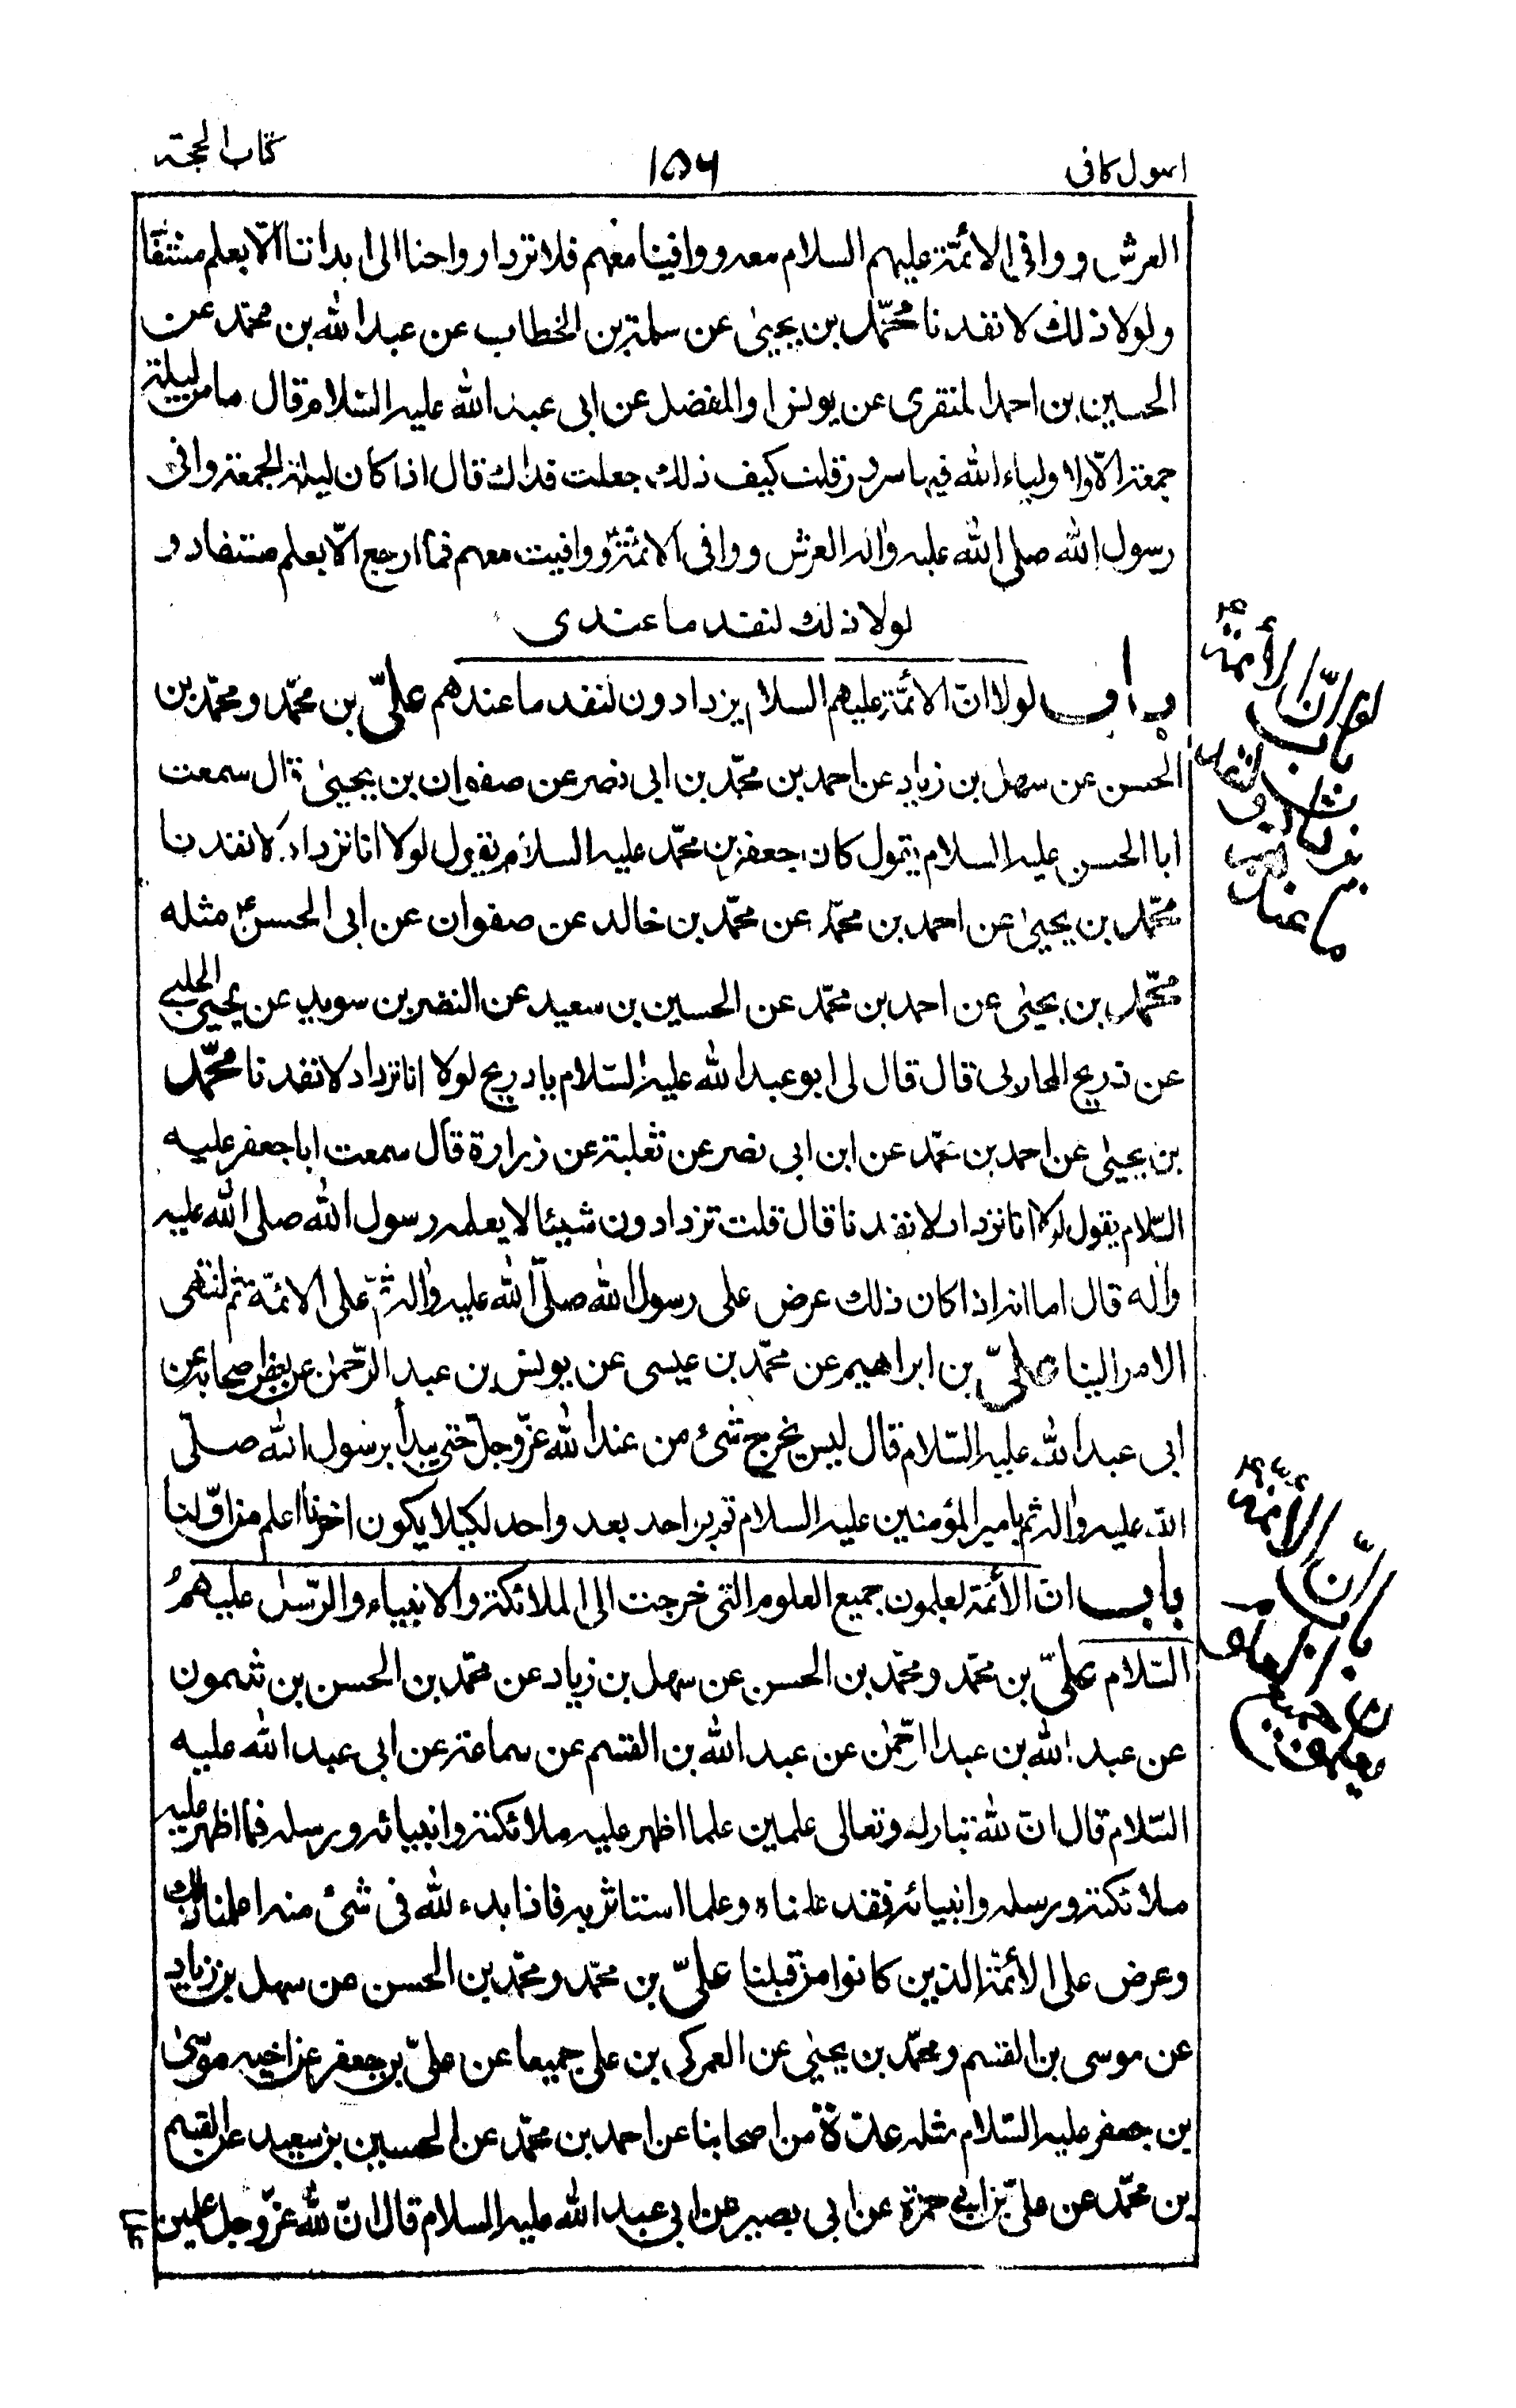 اصول كافى ١٥٦ كتاب الحجة
العرش ووافى الائمّة عليهم السلام معه ووافينا معهم فلا تردّ ارواحنا الى ابداننا الّا بعلم مستفاد
ولولا ذلك لانفدنا محمّد بن يحيىٰ عن سلمة بن الخطاب عن عبد الله بن محمّد عن
الحسين بن احمد المنقرى عن يونس او المفضل عن ابى عبد الله عليه السّلام قال ما من ليلة
جمعة الّا ولاولياء الله فيها سرور قلت كيف ذلك جعلت فداك قال اذا كان ليلة الجمعة وافى
رسول الله صلى الله عليه واله العرش ووافى الائمّة ووافيت معهم فما ارجع الّا بعلم مستفاد و
لولا ذلك لنفد ما عندى
باب لولا انّ الائمّة عليهم السلام يزدادون لنفد ما عندهم علىّ بن محمّد ومحمّد بن
الحسن عن سهل بن زياد عن احمد بن محمّد بن ابى نصر عن صفوان بن يحيىٰ قال سمعت
ابا الحسن عليه السلام يقول كان جعفر بن محمّد عليه السلام يقول لولا انا نزداد لانفدنا
محمّد بن يحيىٰ عن احمد بن محمّد عن محمّد بن خالد عن صفوان عن ابى الحسن ع مثله
محمّد بن يحيىٰ عن احمد بن محمّد عن الحسين بن سعيد عن النضر بن سويد عن يحيى الحلبى
عن ذريح المحاربى قال قال لى ابو عبد الله عليه السّلام يا ذريح لولا انا نزداد لانفدنا محمّد
بن يحيىٰ عن احمد بن محمّد عن ابن ابى نصر عن ثعلبة عن زرارة قال سمعت ابا جعفر عليه
السّلام يقول لولا انا نزداد لانفدنا قال قلت تزدادون شيئا لا يعلمه رسول الله صلى الله عليه
واله قال اما انه اذا كان ذلك عرض على رسول الله صلّى الله عليه واله ثمّ على الائمّة ثم انتهى
الامر الينا علىّ بن ابراهيم عن محمّد بن عيسى عن يونس بن عبد الرّحمٰن عن بعض اصحابه عن
ابى عبد الله عليه السّلام قال ليس يخرج شىء من عند الله عزّ وجلّ حتى يبدأ برسول الله صلّى
الله عليه واله ثم بامير المؤمنين عليه السلام ثم بواحد بعد واحد لكيلا يكون اخرنا اعلم من اوّلنا
باب انّ الائمّة يعلمون جميع العلوم التى خرجت الى الملائكة والانبياء والرّسل عليهم
السّلام علىّ بن محمّد ومحمّد بن الحسن عن سهل بن زياد عن محمّد بن الحسن بن شمون
عن عبد الله بن عبد الرّحمٰن عن عبد الله بن القسم عن سماعة عن ابى عبد الله عليه
السّلام قال انّ لله تبارك وتعالى علمين علما اظهر عليه ملائكته وانبيائه ورسله فما اظهر عليه
ملائكته ورسله وانبيائه فقد علمناه وعلما استاثر به فاذا بدء لله فى شىء منه اعلمنا ذلك
وعرض على الائمّة الذين كانوا من قبلنا علىّ بن محمّد ومحمّد بن الحسن عن سهل بن زياد
عن موسى بن القسم ومحمّد بن يحيىٰ عن العمركى بن على جميعا عن علىّ بن جعفر عن اخيه موسىٰ
بن جعفر عليه السّلام مثله عدّة من اصحابنا عن احمد بن محمّد عن الحسين بن سعيد عن القسم
بن محمّد عن علىّ بن ابى حمزة عن ابى بصير عن ابى عبد الله عليه السلام قال انّ لله عزّ وجل علمين